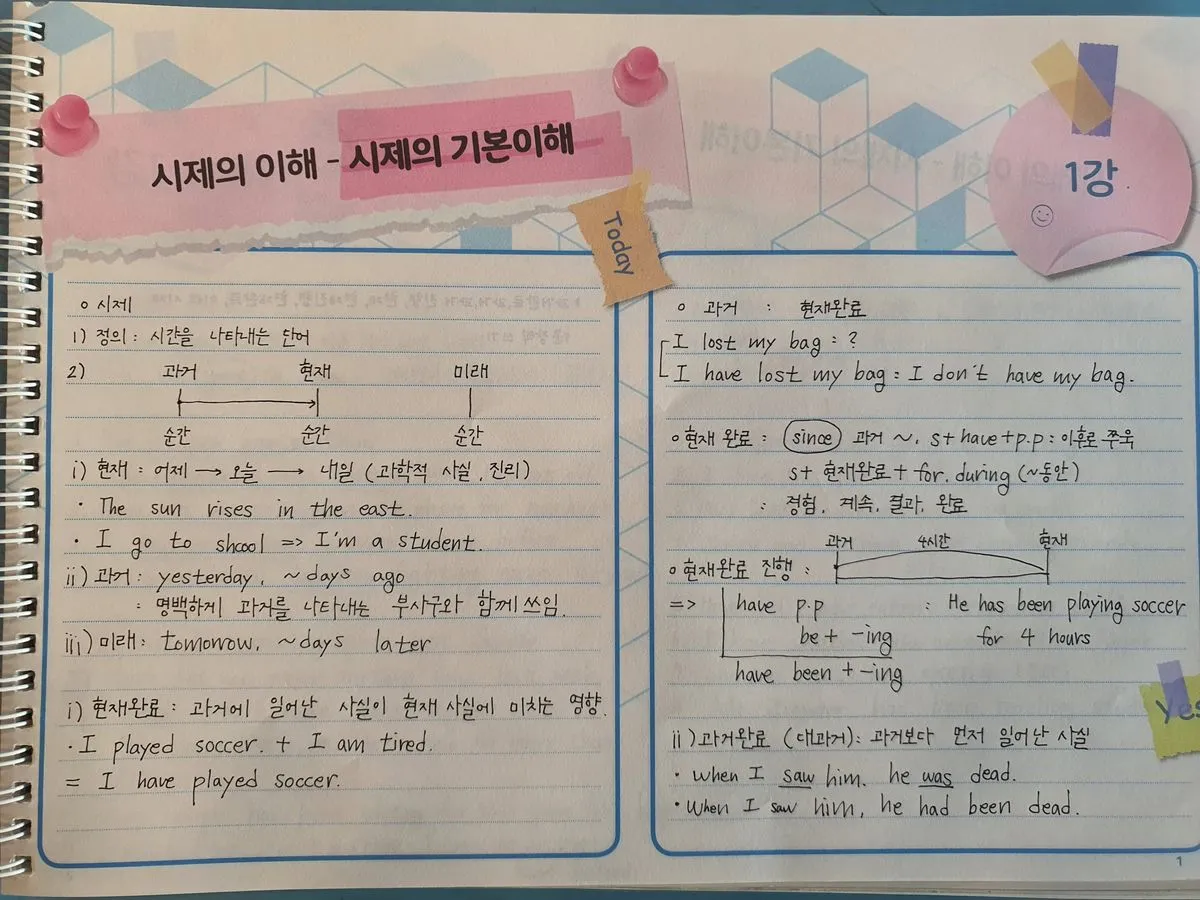 시제의 이해 - 시제의 기본이해
1강
Today
○ 시제
1) 정의 : 시간을 나타내는 단어
2) 과거 현재 미래
순간 순간 순간
i) 현재 : 어제 → 오늘 → 내일 (과학적 사실, 진리)
· The sun rises in the east.
· I go to shcool => I'm a student.
ii) 과거 : yesterday, ~days ago
: 명백하게 과거를 나타내는 부사구와 함께 쓰임.
iii) 미래 : tomorrow, ~days later
i) 현재완료 : 과거에 일어난 사실이 현재 사실에 미치는 영향.
· I played soccer. + I am tired.
= I have played soccer.
○ 과거 : 현재완료
I lost my bag : ?
I have lost my bag : I don't have my bag.
○ 현재 완료 : since 과거 ~, s+have+p.p : 이후로 쭈욱
s+ 현재완료 + for. during (~동안)
: 경험, 계속, 결과, 완료
과거 4시간 현재
○ 현재완료 진행 :
=> have p.p : He has been playing soccer
be + -ing for 4 hours
have been + -ing
ii) 과거완료 (대과거) : 과거보다 먼저 일어난 사실
· when I saw him. he was dead.
· when I saw him, he had been dead.
Yes
1